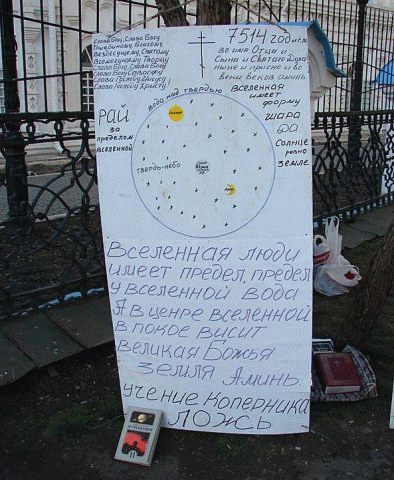 Слава Богу, Слава Богу
Триединому, Благому
Вездесущему, Святому
Всемогущему Творцу
Слава Богу Слава Богу
Слава Богу Саваофу
Слава Господу Иисусу
Слава Господу Христу
7514 год
За имя Отца и
Сына и Святаго Духа
ныне и присно и во
веки веков аминь
Вселенная
имеет
форму
шара
да
Солнце
ровно
земле
РАЙ
за
пределом
вселенной
вода над твердью
твердь-небо
Вселенная люди
имеет предел, предел
у вселенной вода
А в центре вселенной
в покое висит
великая Божья
земля Аминь
учение Коперника
ЛОЖЬ